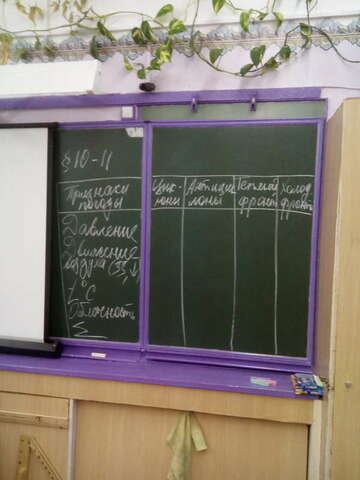 § 10-11
Признаки погоды
Цик-лоны
Антицик-лоны
Теплый фронт
Холод. фронт
Давление
Движение воздуха
t °C
Облачность
Σ